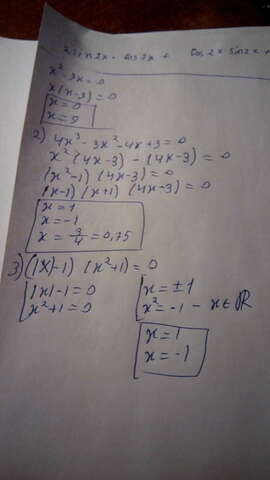 x² - 9x = 0
x(x-9) = 0
x = 0
x = 9
2) 4x³ - 3x² - 4x + 3 = 0
x² (4x-3) - (4x-3) = 0
(x²-1) (4x-3) = 0
(x-1) (x+1) (4x-3) = 0
x = 1
x = -1
x = 3/4 = 0,75
3) (|x|-1) (x²+1) = 0
|x|-1 = 0
x²+1 = 0
x = ±1
x² = -1 - x ∈ ℝ
x = 1
x = -1